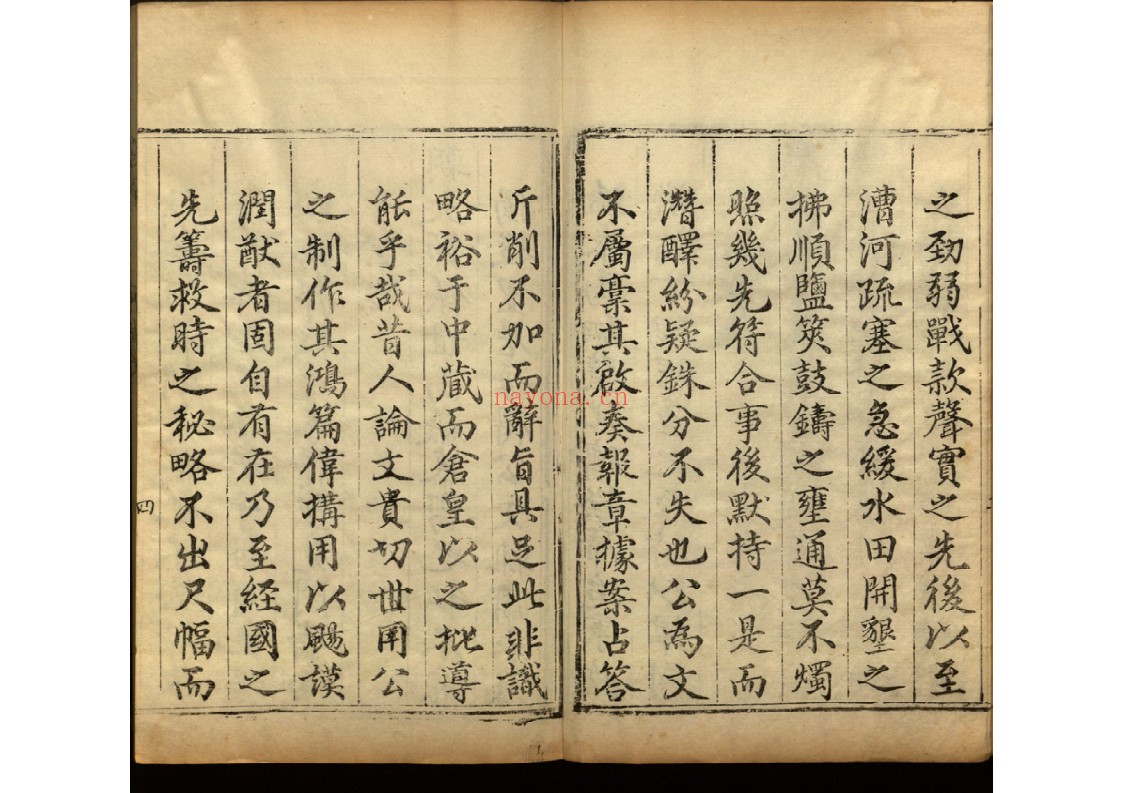 之勁弱戰款聲實之先後以至
漕河疏塞之急緩水田開墾之
拂順鹽筴鼓鑄之壅通莫不燭
照幾先符合事後默持一是而
潛釋紛疑銖分不失也公為文
不屬藁其啟奏報章據案占答
斤削不加而辭旨具足此非識
略裕于中蕆而倉皇以之批導
能乎哉昔人論文貴切世用公
之制作其鴻篇偉搆用以颺謨
潤猷者固自有在乃至經國之
先籌救時之秘略不出尺幅而
四
nayona.cn